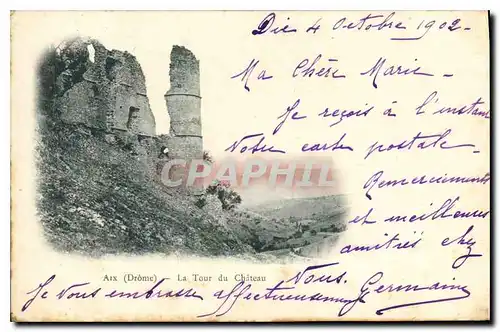 Die 4 octobre 1902 -
Ma Chère Marie -
Je reçois à l'instant
Votre carte postale -
Remerciements
et meilleures
amitiés chez
Vous. Germaine
AIX (Drôme) — LA TOUR DU CHÂTEAU
Je Vous embrasse affectueusement
CPAPHIL